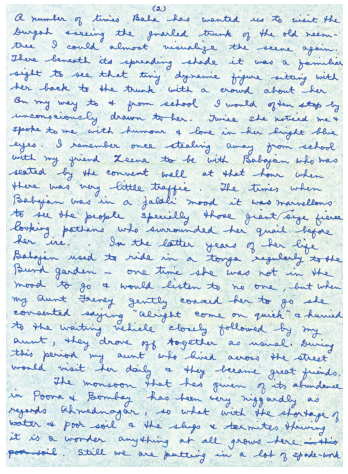 (2)
A number of times Baba has wanted us to visit the
Durgah & seeing the gnarled trunk of the old neem-
tree I could almost visualize the scene again.
There beneath its spreading shade it was a familiar
sight to see that tiny dynamic figure sitting with
her back to the trunk with a crowd about her.
On my way to & from school I would often stop by
unconsciously drawn to her. Twice she noticed me &
spoke to me with humour & love in her bright blue
eyes. I remember once stealing away from school
with my friend Zeena to be with Babajan who was
seated by the convent wall at that hour when
there was very little traffic. The times when
Babajan was in a jalali mood it was marvellous
to see the people specially those giant size fierce
looking pathans who surrounded her quail before
her ire. In the latter years of her life
Babajan used to ride in a tonga regularly to the
Bund garden – one time she was not in the
mood to go & would listen to no one, but when
my aunt Freney gently coaxed her to go she
consented saying "alright come on quick" & hurried
to the waiting vehicle closely followed by my
aunt, & they drove off together as usual. During
this period my aunt who lived across the street
would visit her daily & they became great friends.
The monsoon that has given of its abundance
in Poona & Bombay has been very niggardly as
regards Ahmednagar, so what with the shortage of
water & poor soil & the slugs & termites thriving
it is a wonder anything at all grows here in this
poor soil. Still we are putting in a lot of spade-work